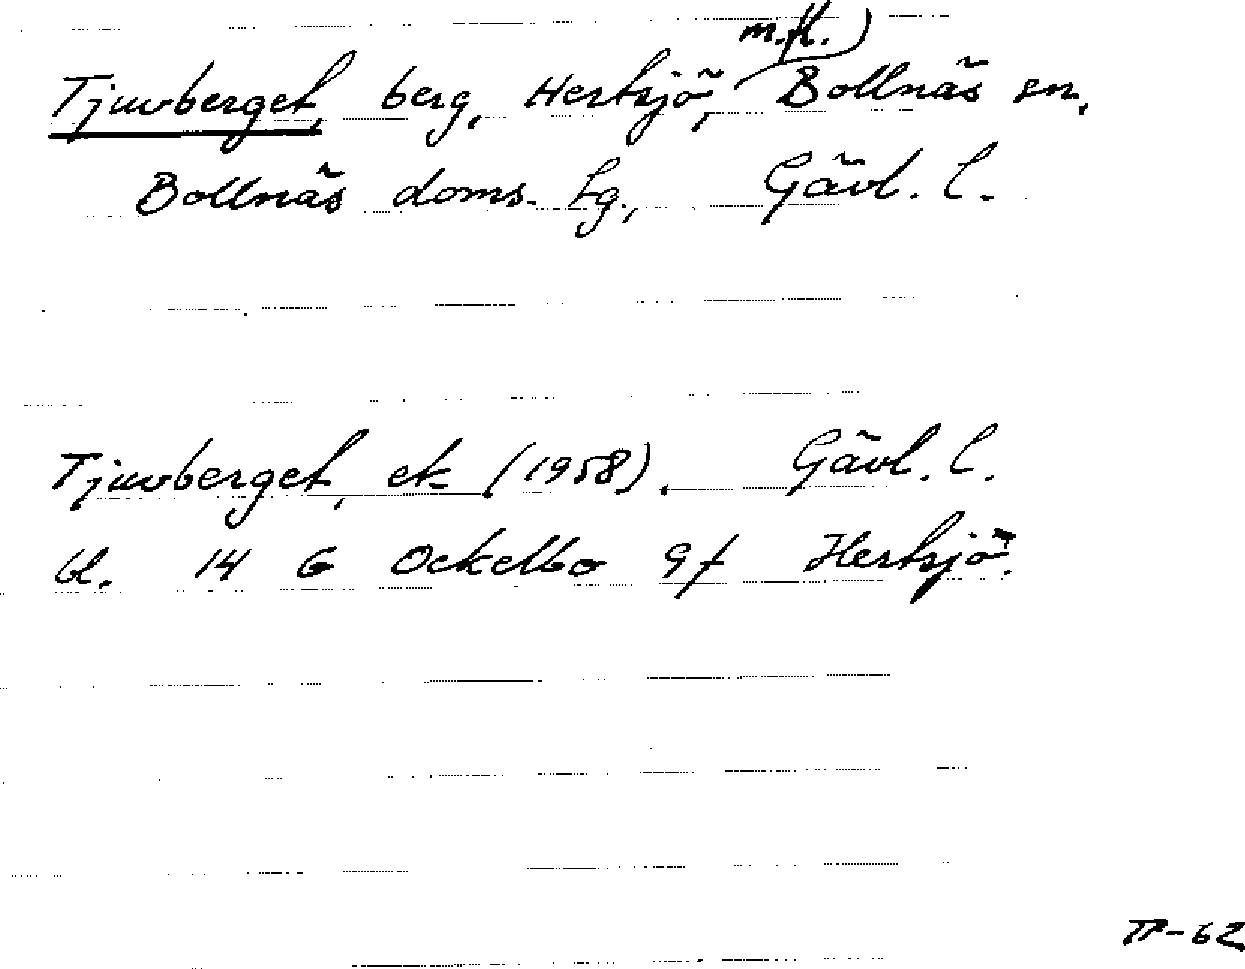 m.fl.)
Tjuvberget, berg, Hertsjö, Bollnäs sn,
Bollnäs doms. tg., Gävl. l.
Tjuvberget, ek (1958). Gävl. l.
bl. 14 G Ockelbo 9f Hertsjö.
TP-62